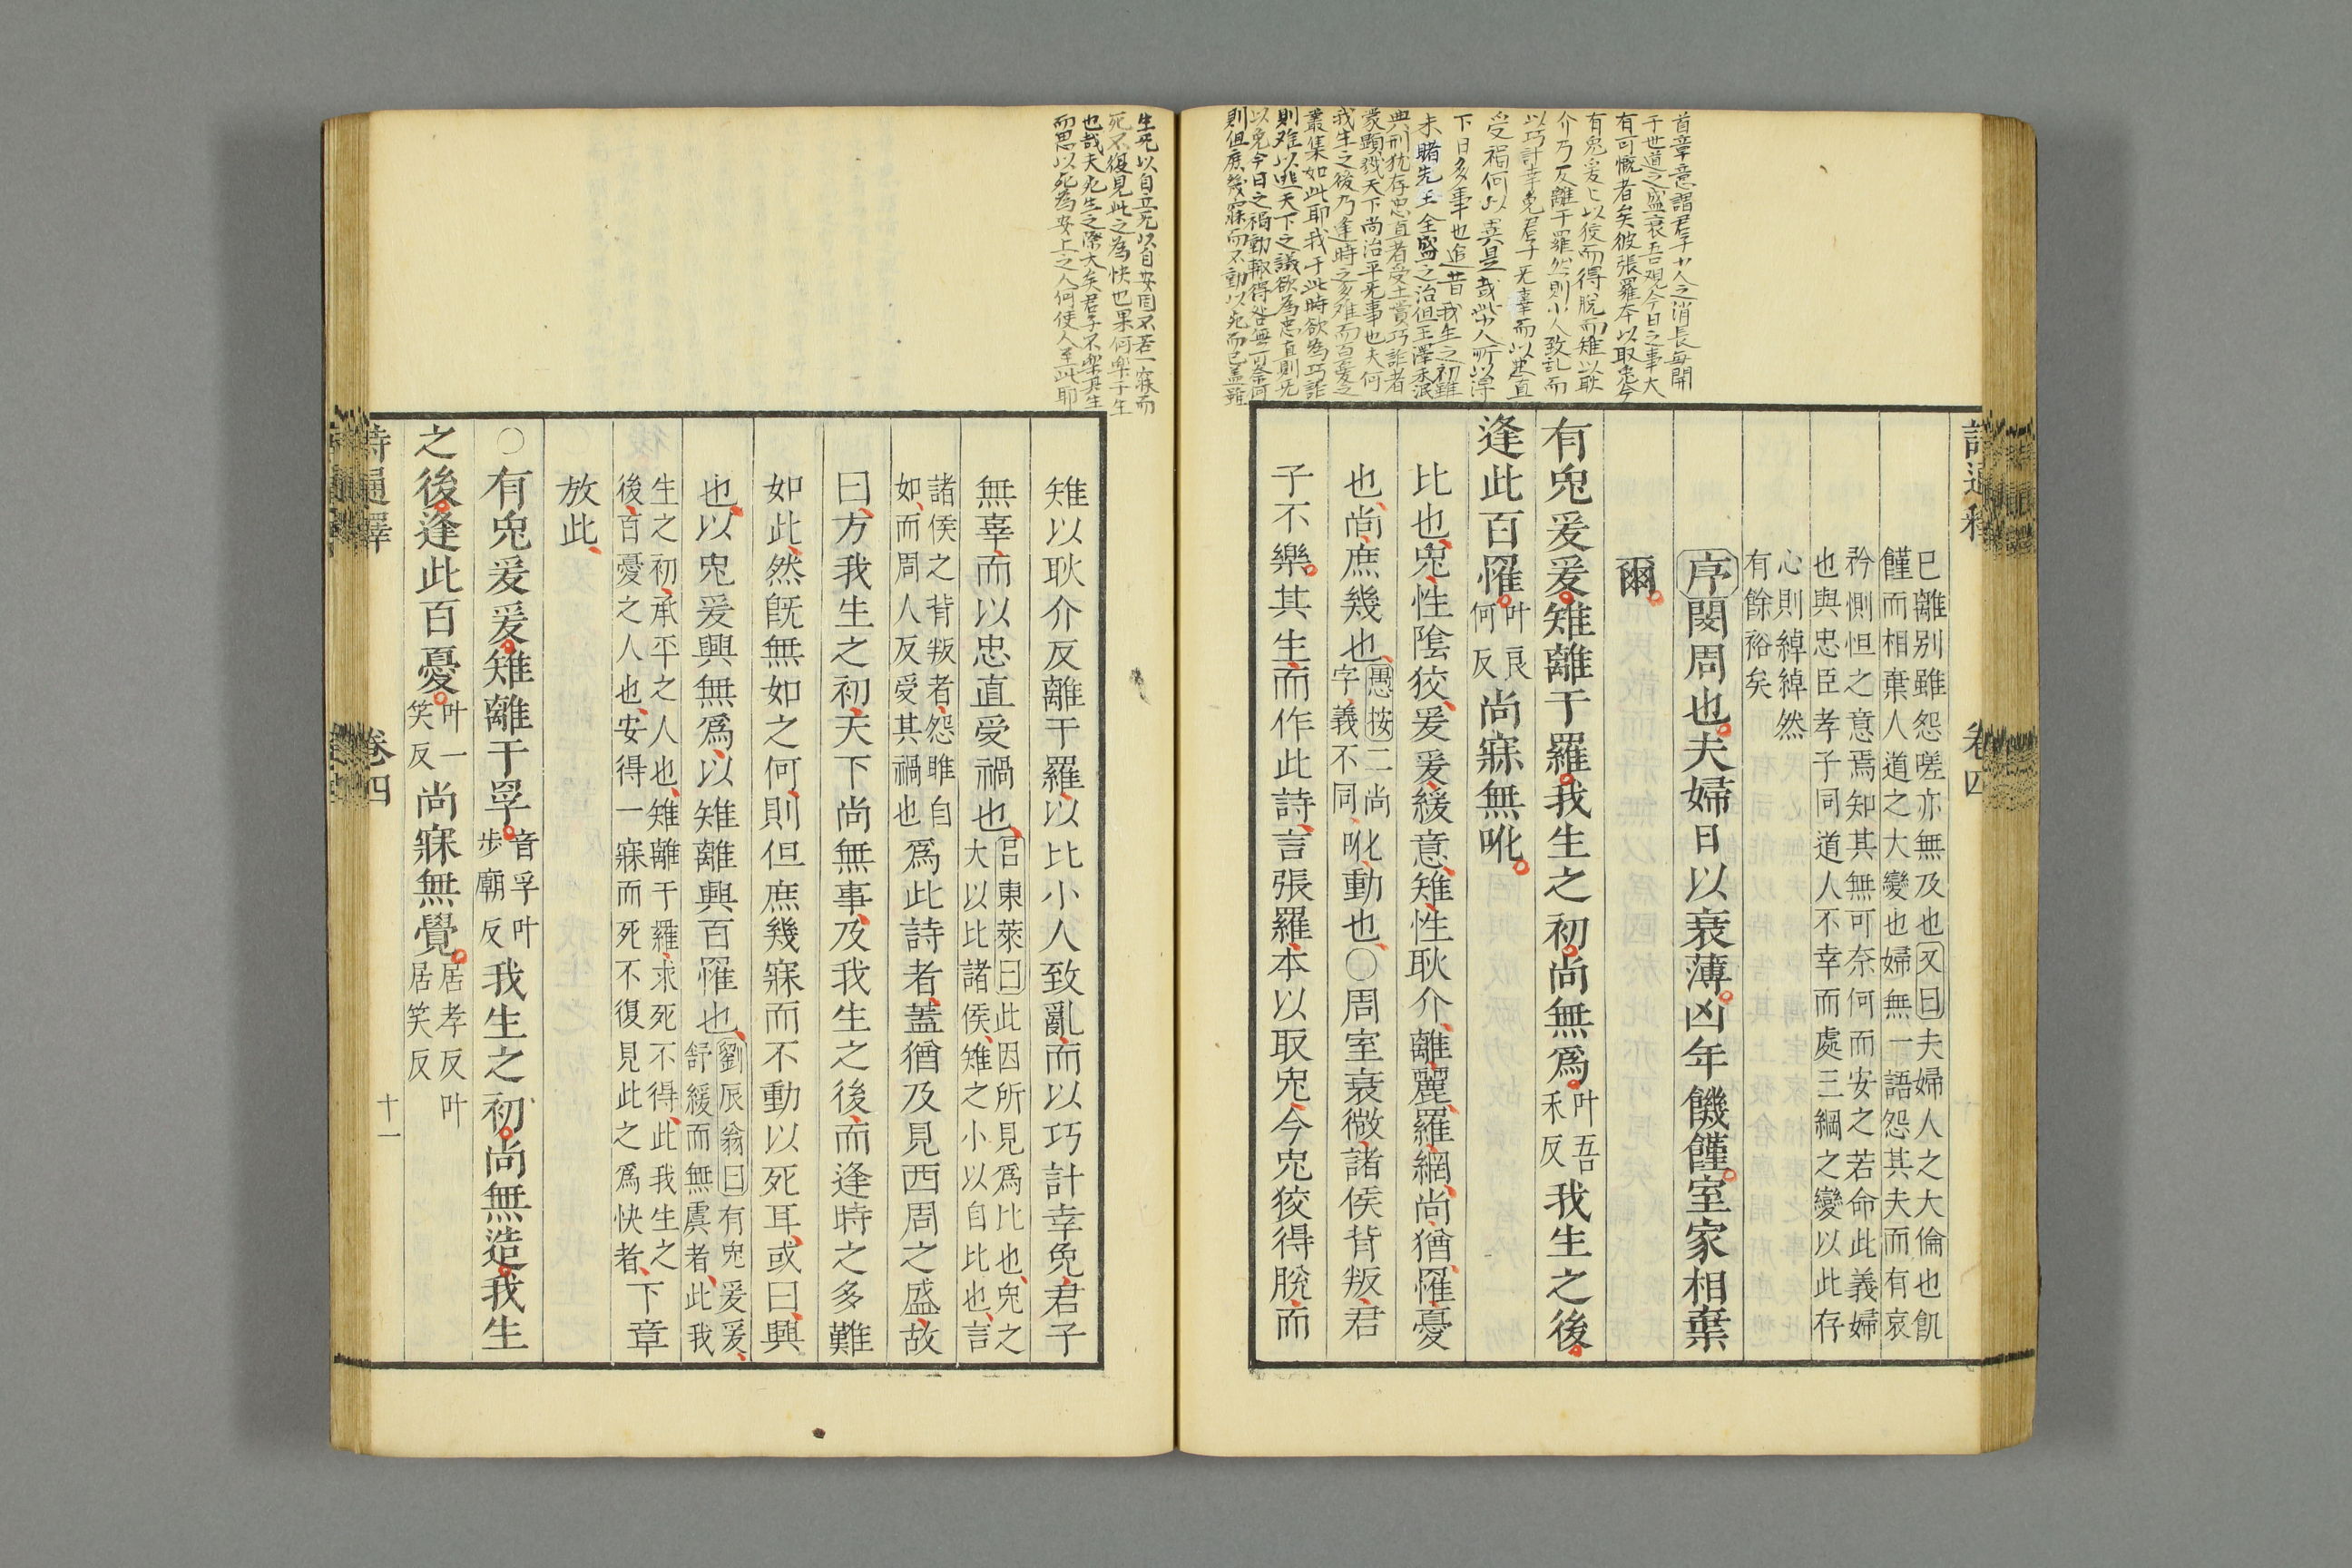 詩通釋
卷四
已離别雖怨嗟亦無及也又曰夫婦人之大倫也飢
饉而相棄人道之大變也婦無一語怨其夫而有哀
矜惻怛之意焉知其無可奈何而安之若命此義婦
也與忠臣孝子同道人不幸而處三綱之變以此存
心則綽綽然
有餘裕矣
序閔周也夫婦日以衰薄凶年饑饉室家相棄
爾
有兔爰爰雉離于羅我生之初尚無爲叶吾禾反我生之後
逢此百罹叶良何反尚寐無吪
比也兔性陰狡爰爰緩意雉性耿介離麗羅網尚猶罹憂
也尚庶幾也愚按二尚字義不同吪動也○周室衰微諸侯背叛君
子不樂其生而作此詩言張羅本以取兔今兔狡得脫而
雉以耿介反離于羅以比小人致亂而以巧計幸免君子
無辜而以忠直受禍也呂東萊曰此因所見爲比也兔之大以比諸侯雉之小以自比也言
諸侯之背叛者怨雎自如而周人反受其禍也爲此詩者蓋猶及見西周之盛故
曰方我生之初天下尚無事及我生之後而逢時之多難
如此然旣無如之何則但庶幾寐而不動以死耳或曰興
也以兔爰興無爲以雉離興百罹也劉辰翁曰有兔爰爰舒緩而無虞者此我
生之初承平之人也雉離于羅求死不得此我生之後百憂之人也安得一寐而死不復見此之爲快者下章
放此
○有兔爰爰雉離于罦音孚叶步廟反我生之初尚無造我生
之後逢此百憂叶一笑反尚寐無覺居孝反叶居笑反
詩通釋
卷四
十一
首章意謂君子小人之消長每關
于世道之盛衰吾觀今日之事大
有可慨者矣彼張羅本以取兔今
有兔爰上以狡而得脫而雉以耿
介乃反離于羅然則小人致乱而
以巧計幸免君子无辜而以忠直
受禍何以異是哉
下日多事也追昔我生之初雖
未睹先王全盛之治但王澤未泯
典刑犹存忠直者受上賞巧詐者
蒙顯戮天下尚治平无事也夫何
我生之後乃逢時之多难而百憂之
叢集如此耶我于此時欲為巧詐
則难以逃天下之議欲為忠直則无
以免今日之禍動輒得咎無可奈何
則但庶幾寐而不動以死而已蓋雖
生死以自立无以自安固不若一寐而
死不復見此之為快也果何樂于生
也哉夫死生之際大矣君子不樂其生
而思以死為安上之人何使人至此耶